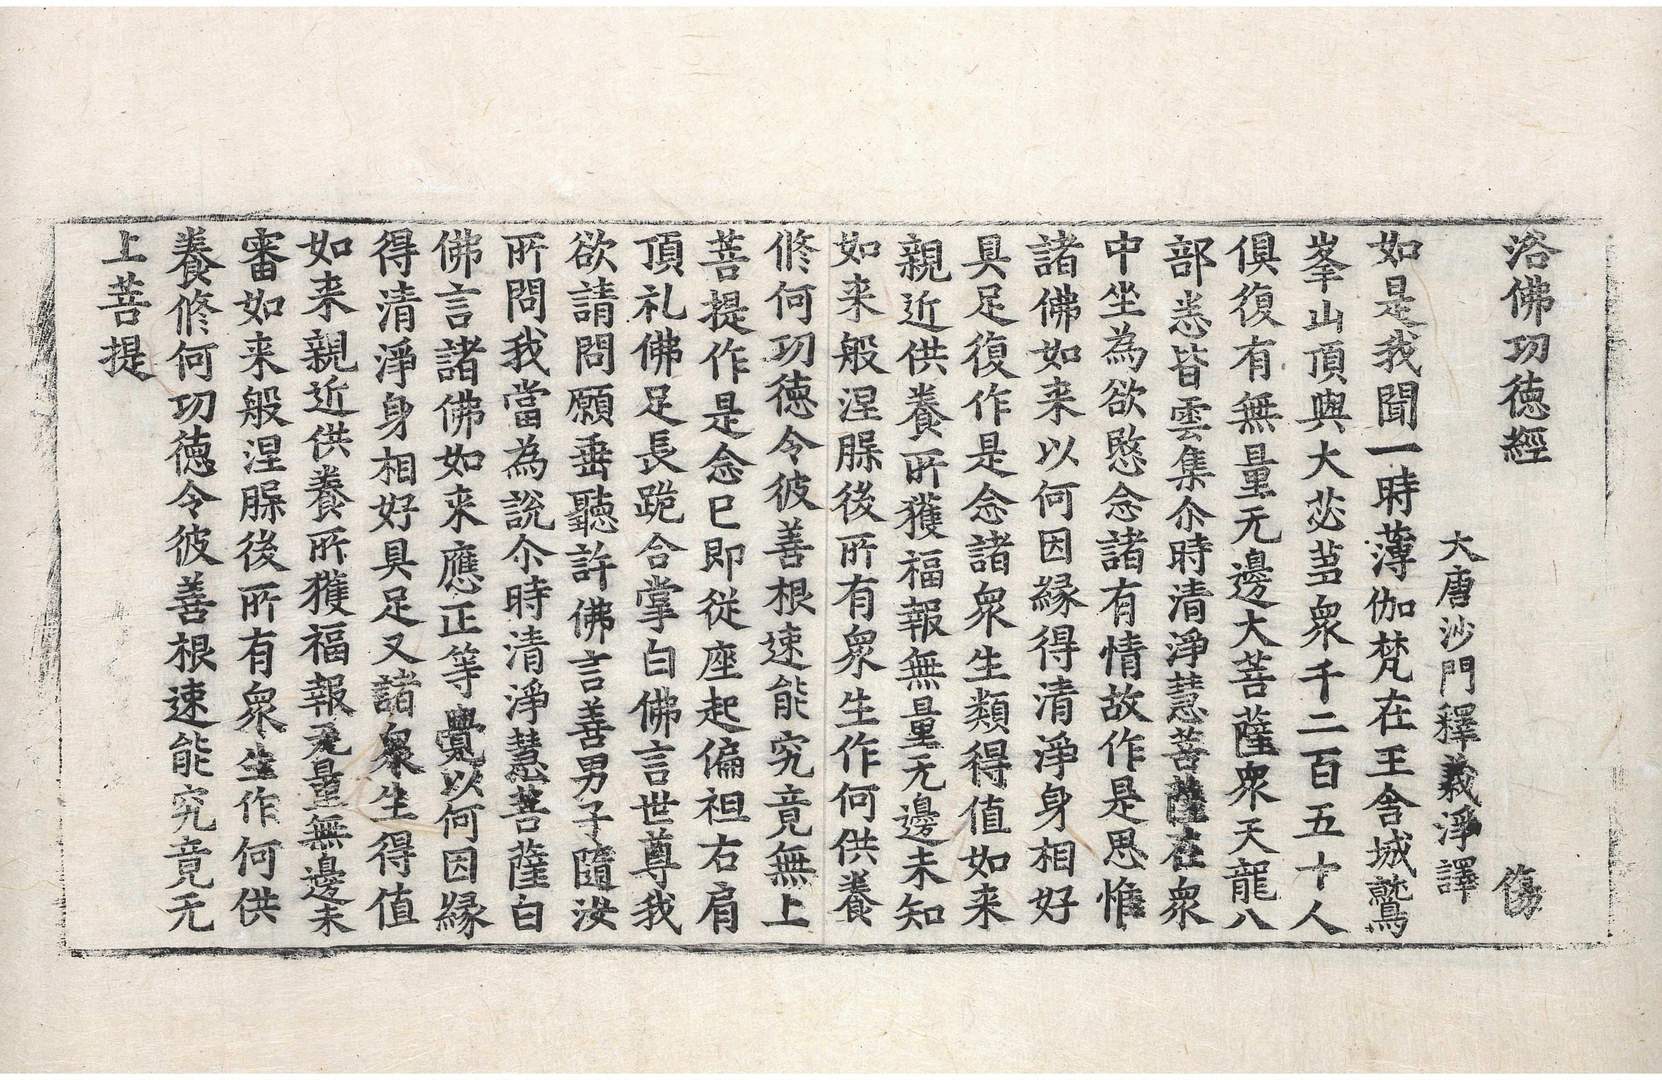 浴佛功徳經 傷
大唐沙門釋義淨譯
如是我聞一時薄伽梵在王舍城鷲
峯山頂與大苾蒭衆千二百五十人
俱復有無量无邊大菩薩衆天龍八
部悉皆雲集尒時清淨慧菩薩在衆
中坐為欲愍念諸有情故作是思惟
諸佛如来以何因縁得清淨身相好
具足復作是念諸衆生類得值如来
親近供養所獲福報無量无邊未知
如来般涅脲後所有衆生作何供養
修何功徳令彼善根速能究竟無上
菩提作是念已即従座起偏袒右肩
頂礼佛足長跪合掌白佛言世尊我
欲請問願垂聽許佛言善男子隨汝
所問我當為說尒時清淨慧菩薩白
佛言諸佛如来應正等覺以何因縁
得清淨身相好具足又諸衆生得值
如来親近供養所獲福報无量無邊未
審如来般涅脲後所有衆生作何供
養修何功徳令彼善根速能究竟无
上菩提